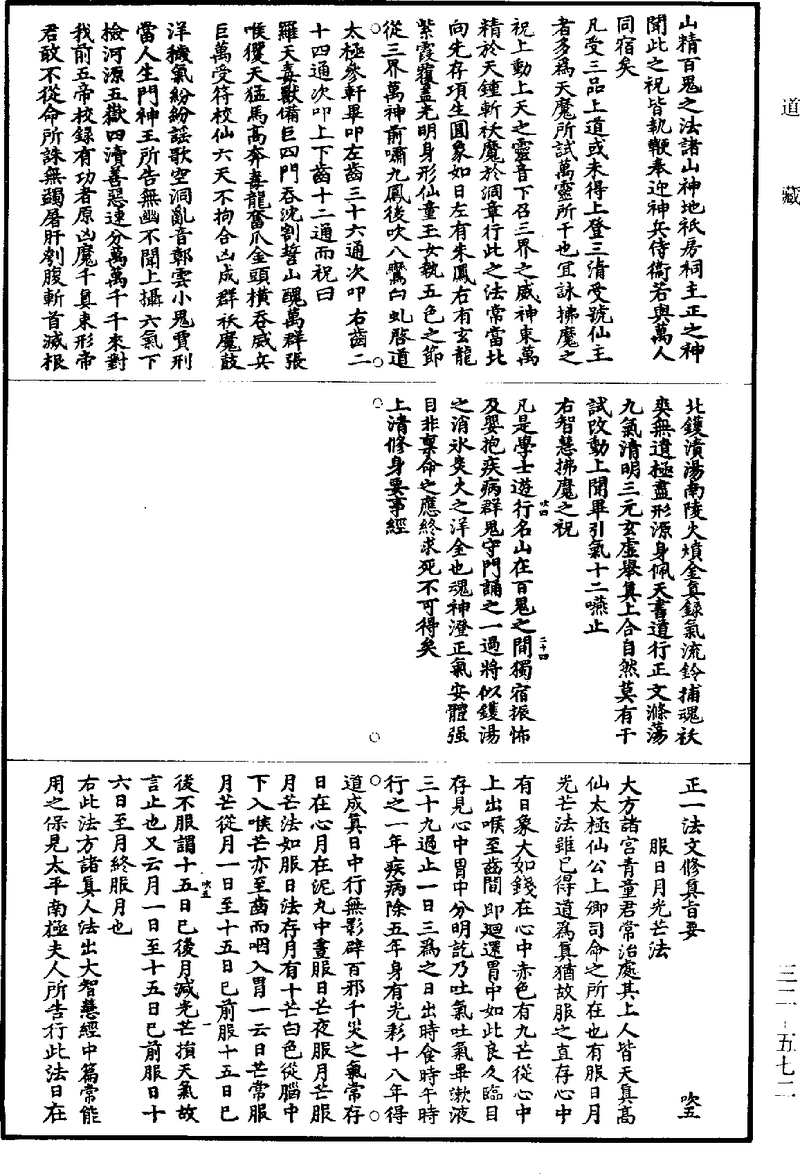 道藏
三二-五七二
山精百鬼之法諸山神地祇房祠主正之神
聞此之祝皆執鞭奉迎神兵侍衞若與萬人
同宿矣
凡受三品上道或未得上登三清受號仙主
者多爲天魔所試萬靈所干也宜詠拂魔之
祝上動上天之靈音下召三界之威神束萬
精於天鍾斬祅魔於洞章行此之法常當北
向先存項生圓象如日左有朱鳳右有玄龍
紫霞覆蓋光明身形仙童玉女執五色之節
從三界萬神前嘯九鳳後吹八鸞白虬啓道
太極參軒畢叩左齒三十六通次叩右齒二
十四通次叩上下齒十二通而祝曰
羅天毒獸備巨四門吞沈割誓山醜萬群張
喉玃天猛馬高奔毒龍奮爪金頭橫吞威兵
巨萬受符校仙六天不拘合凶成群祅魔鼓
洋穢氣紛紛謡歌空洞亂音鄣雲小鬼賈刑
當人生門神王所告無幽不聞上攝六氣下
檢河源五嶽四瀆善惡速分萬萬千千來對
我前五帝校録有功者原凶魔千眞束形帝
君敢不從命所誅無蠲屠肝刳腹斬首滅根
北鑊漬湯南陵火墳金眞錄氣流鈴捕魂祅
爽無遺極盡形源身佩天書道行正文滌蕩
九氣清明三元玄虛舉眞上合自然莫有干
試改動上聞畢引氣十二嚥止
右智慧拂魔之祝
凡是學士遊行名山在百鬼之間獨宿振怖
吹四
二十四
及嬰抱疾病群鬼守門誦之一過將似鑊湯
之消氷炎火之洋金也魂神澄正氣安體强
自非禀命之應終求死不可得矣
上清修身要事經
正一法文修眞旨要
吹五
服日月光芒法
大方諸宮青童君常治處其上人皆天眞高
仙太極仙公上卿司命之所在也有服日月
光芒法雖已得道爲眞猶故服之直存心中
有日象大如錢在心中赤色有九芒從心中
上出喉至齒間即廻還胃中如此良久臨目
存見心中胃中分明訖乃吐氣吐氣畢漱液
三十九過止一日三爲之日出時食時午時
行之一年疾病除五年身有光彩十八年得
道成眞日中行無影辟百邪千災之氣常存
日在心月在泥丸中晝服日芒夜服月芒服
月芒法如服日法存月有十芒白色從腦中
下入喉芒亦至齒而咽入胃一云日芒常服
月芒從月一日至十五日已前服十五日已
後不服謂十五日已後月減光芒損天氣故
吹五
一
言止也又云月一日至十五日已前服日十
六日至月終服月也
右此法方諸眞人法出大智慧經中篇常能
用之保見太平南極夫人所告行此法日在